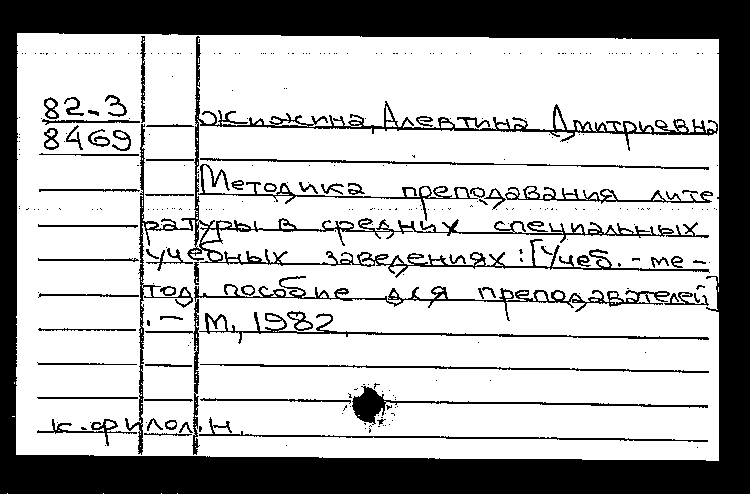 82-3
8469
Жижина, Алевтина Дмитриевна
Методика преподавания лите-
ратуры в средних специальных
учебных заведениях: [Учеб.-ме-
тод. пособие для преподавателей]
.- М., 1982.
к.филол.н.